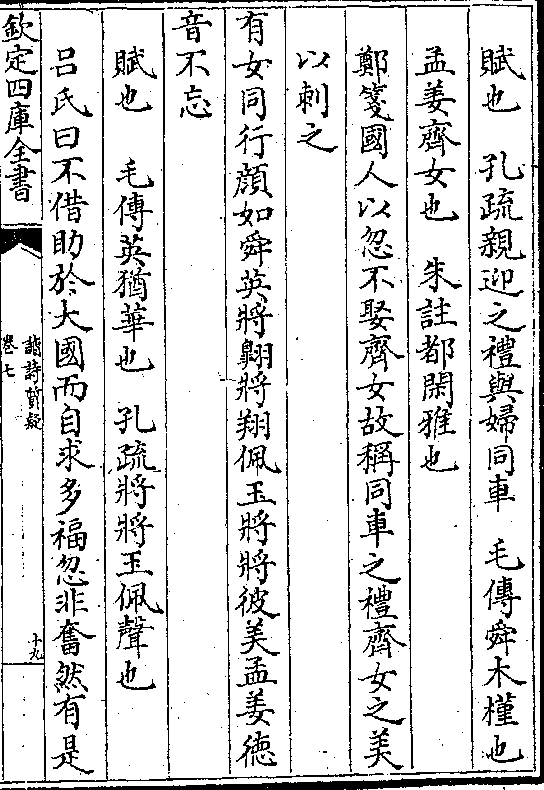 賦也　孔疏親迎之禮與婦同車　毛傳舜木槿也
孟姜齊女也　朱註都閑雅也
鄭箋國人以忽不娶齊女故稱同車之禮齊女之美
以刺之
有女同行顔如舜英將翺將翔佩玉將將彼美孟姜德
音不忘
賦也　毛傳英猶華也　孔疏將將玉佩聲也
呂氏曰不借助於大國而自求多福忽非奮然有是
欽定四庫全書
詩質疑
卷七
十九